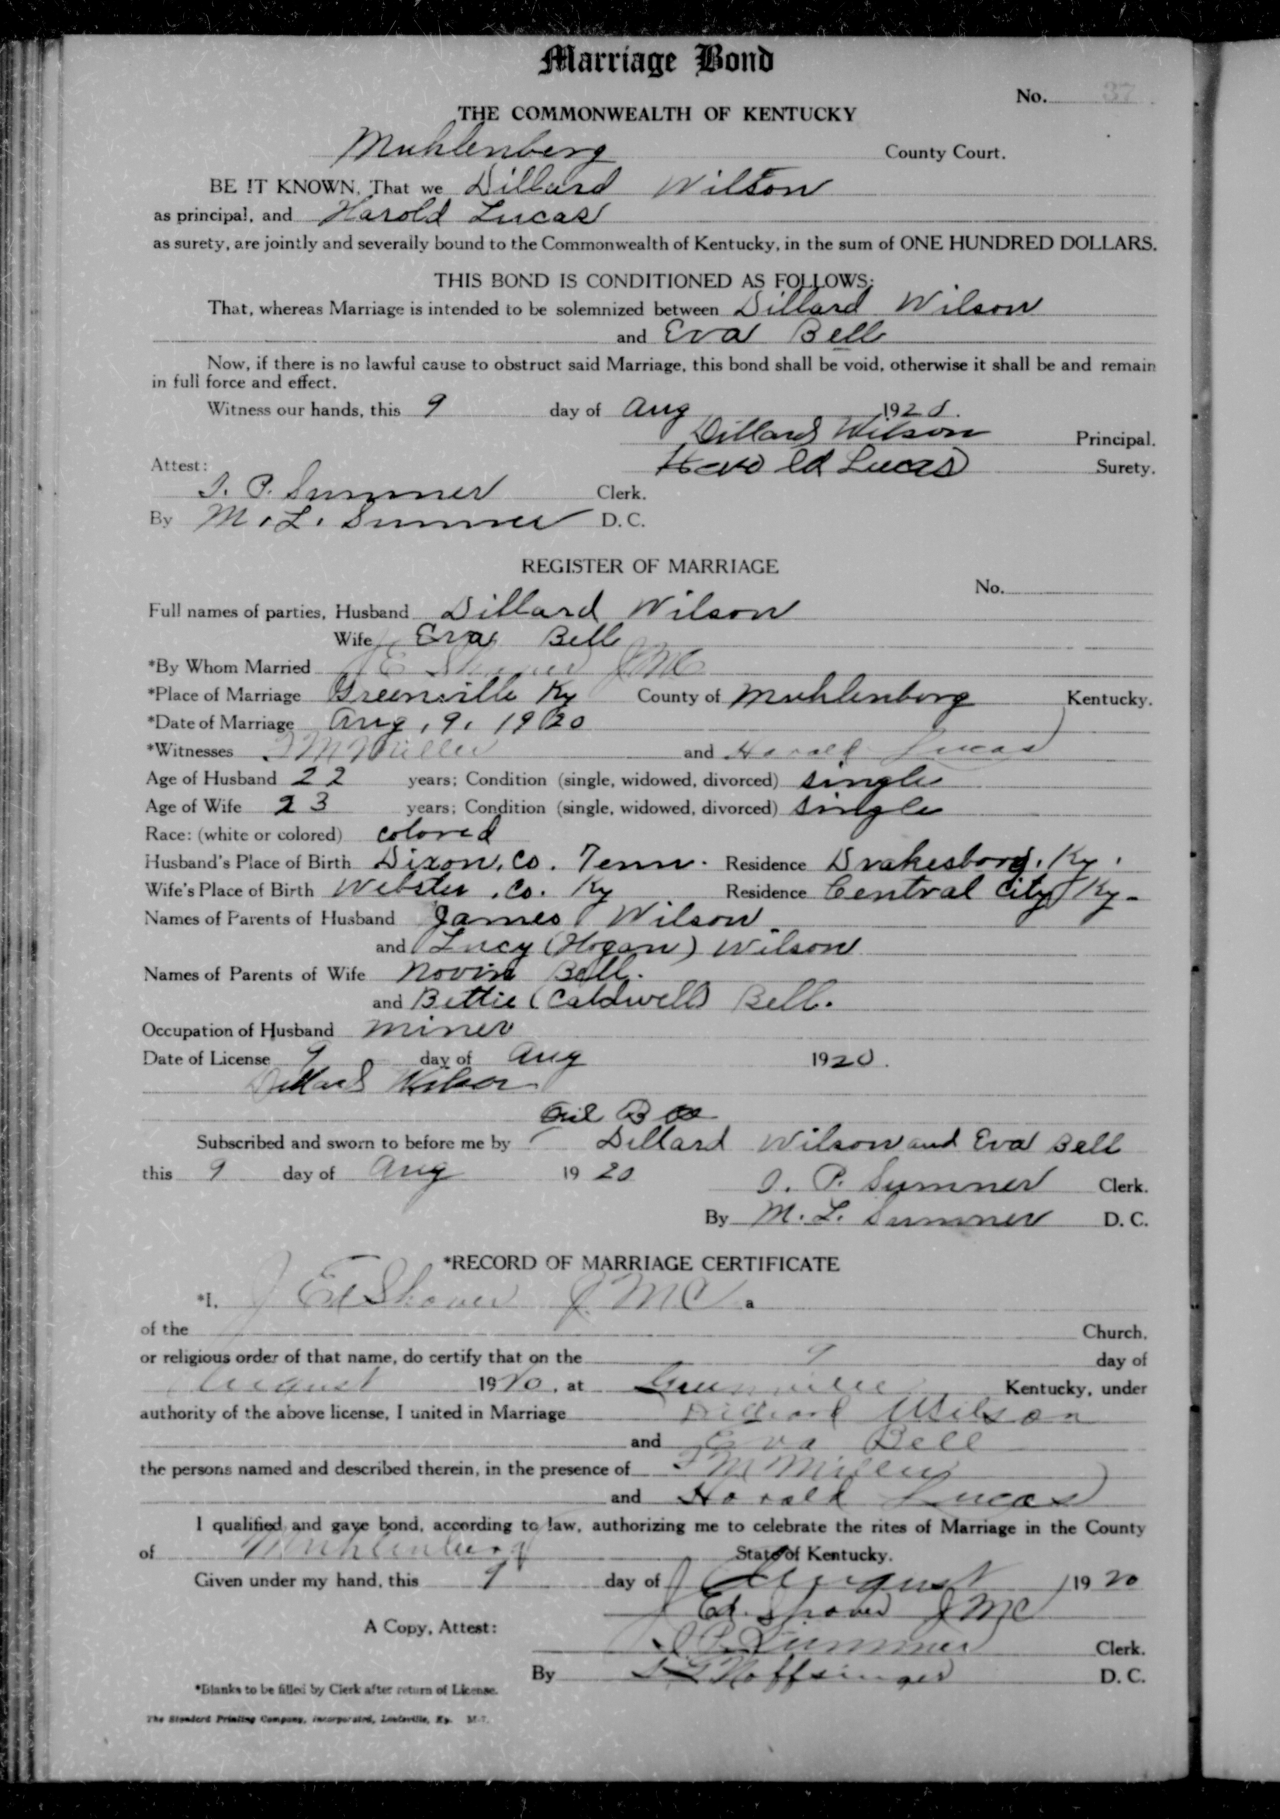 Marriage Bond
No. 37
THE COMMONWEALTH OF KENTUCKY
Muhlenberg County Court.
BE IT KNOWN, That we Dillard Wilson
as principal, and Harold Lucas
as surety, are jointly and severally bound to the Commonwealth of Kentucky, in the sum of ONE HUNDRED DOLLARS.
THIS BOND IS CONDITIONED AS FOLLOWS:
That, whereas Marriage is intended to be solemnized between Dillard Wilson
and Eva Bell
Now, if there is no lawful cause to obstruct said Marriage, this bond shall be void, otherwise it shall be and remain
in full force and effect.
Witness our hands, this 9 day of Aug 1920.
Dillard Wilson Principal.
Harold Lucas Surety.
Attest:
I. P. Summer Clerk.
By M. L. Summer D. C.
REGISTER OF MARRIAGE
No.
Full names of parties, Husband Dillard Wilson
Wife Eva Bell
*By Whom Married J E Shaver JMC
*Place of Marriage Greenville Ky County of Muhlenberg Kentucky.
*Date of Marriage Aug. 9, 1920
*Witnesses and Harold Lucas
Age of Husband 22 years; Condition (single, widowed, divorced) single
Age of Wife 23 years; Condition (single, widowed, divorced) single
Race: (white or colored) colored
Husband's Place of Birth Dixon, Co. Tenn. Residence Drakesboro, Ky.
Wife's Place of Birth Webster, Co. Ky Residence Central City Ky-
Names of Parents of Husband James Wilson
and Lucy (Hogan) Wilson
Names of Parents of Wife Bell.
and Bettie (Caldwell) Bell.
Occupation of Husband miner
Date of License 9 day of Aug 1920.
Dillard Wilson
Subscribed and sworn to before me by Dillard Wilson and Eva Bell
this 9 day of Aug 1920
I. P. Summer Clerk.
By M. L. Summer D. C.
*RECORD OF MARRIAGE CERTIFICATE
*I, J Ed Shaver JMC a
of the Church,
or religious order of that name, do certify that on the 9 day of
August 1920, at Greenville Kentucky, under
authority of the above license, I united in Marriage Dillard Wilson
and Eva Bell
the persons named and described therein, in the presence of
and Harold Lucas
I qualified and gave bond, according to law, authorizing me to celebrate the rites of Marriage in the County
of Muhlenberg State of Kentucky.
Given under my hand, this 9 day of August 1920
J Ed. Shaver JMC
A Copy, Attest:
I P. Summer Clerk.
By Noffsinger D. C.
*Blanks to be filled by Clerk after return of License.
The Standard Printing Company, Incorporated, Louisville, Ky.